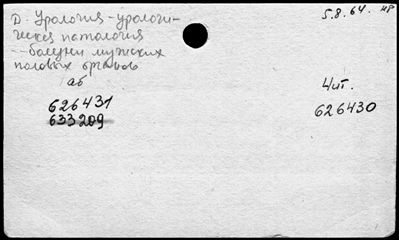 Д. Урология - урологи- 5.8.64. нр
ческая патология
-- болезни мужских
половых органов
аб Чит.
626431 626430
633209